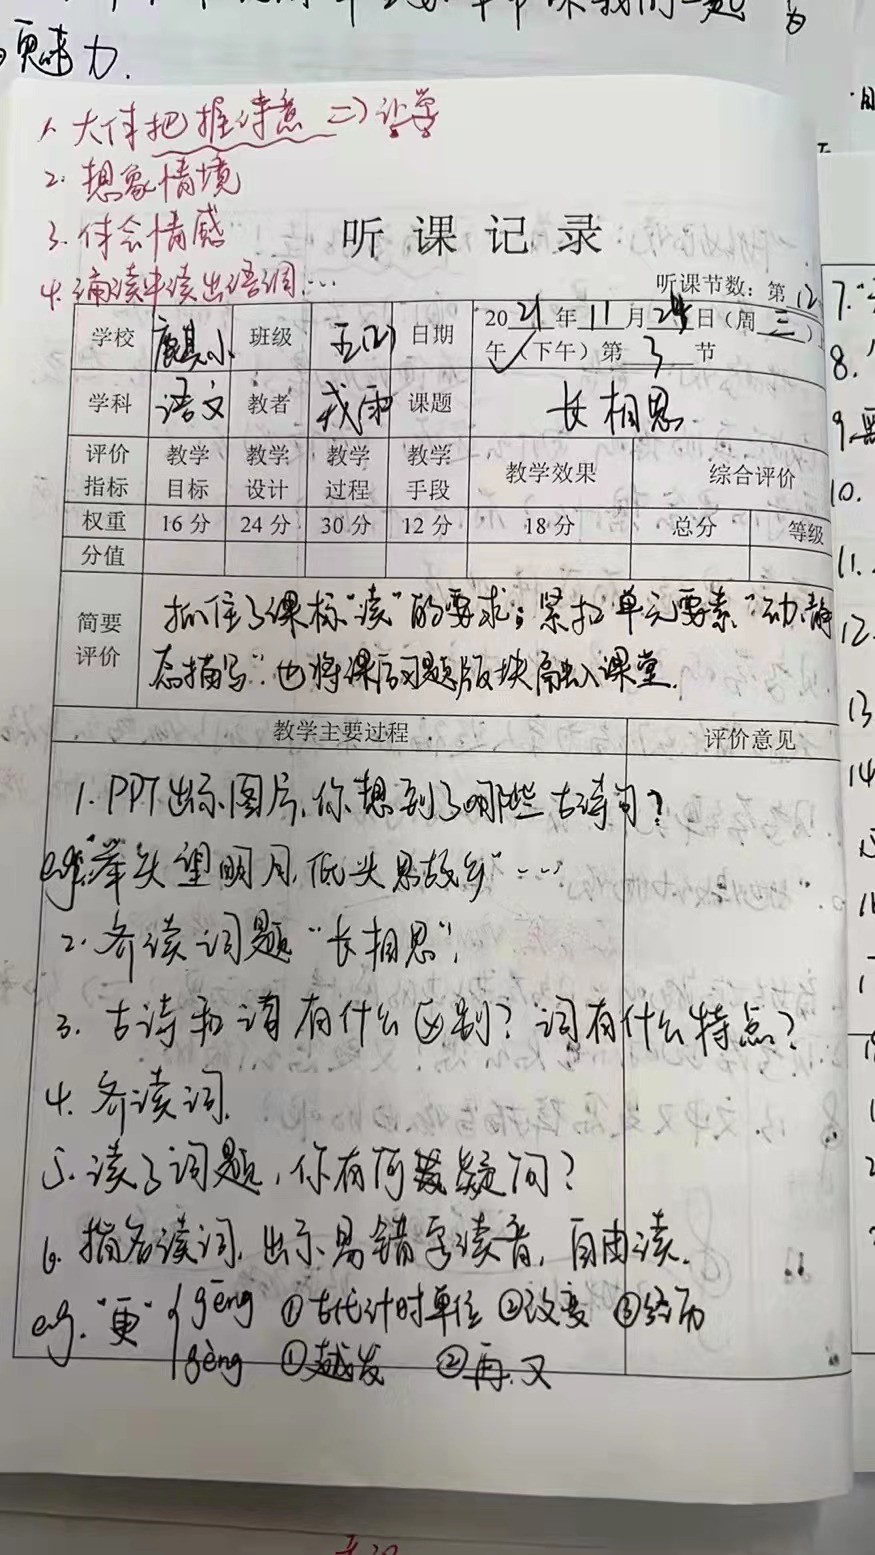 魅力.
1. 大体把握诗意 => 让学
2. 想象情境
3. 体会情感
4. 诵读中读出语调…
听课记录
听课节数：第12
学校 班级 五(2) 日期 2021年11月24日（周三）
午✓（下午）第3节
学科 语文 教者 戎雨 课题 长相思
评价指标 教学目标 教学设计 教学过程 教学手段 教学效果 综合评价
权重 16分 24分 30分 12分 18分 总分 等级
分值
简要评价 抓住了课标"读"的要求；紧扣单元要素"动、静
态描写". 也将课后习题版块融入课堂.
教学主要过程 评价意见
1. PPT出示图片，你想到了哪些古诗句？
eg:"举头望明月，低头思故乡"…
2. 齐读词题"长相思".
3. 古诗和词有什么区别？词有什么特点？
4. 齐读词.
5. 读了词题，你有何疑问？
6. 指名读词. 出示易错字读音，自由读.
eg. "更" { gēng ①古代计时单位 ②改变 ③经历
gèng ①越发 ②再.又
7.
8.
9.
10.
11.
12.
13
14